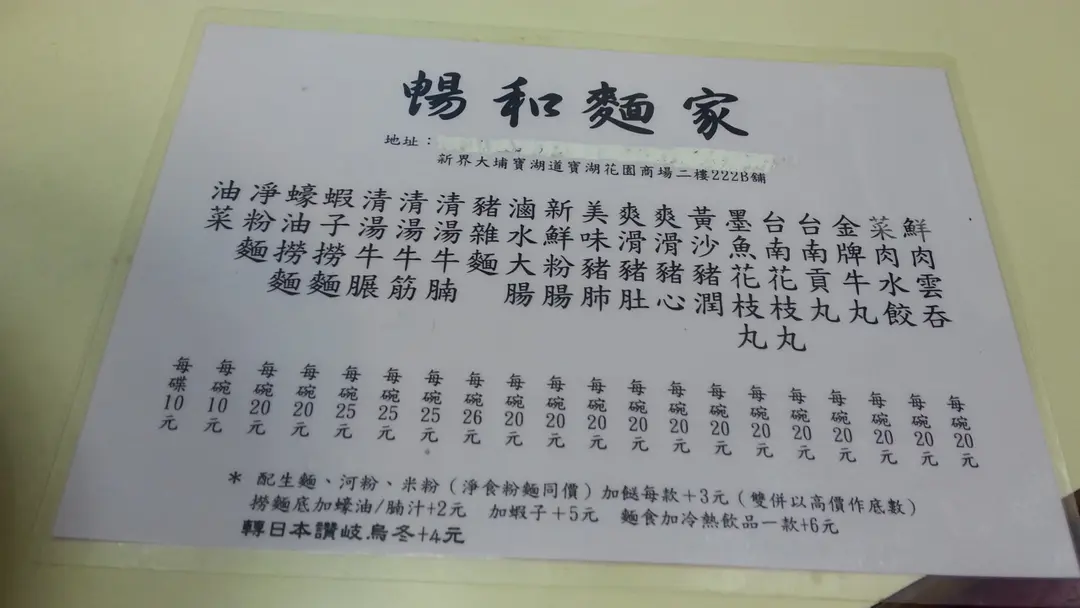 暢和麵家
地址：
新界大埔寶湖道寶湖花園商場二樓222B舖
鮮肉雲吞 每碗20元
菜肉水餃 每碗20元
金牌牛丸 每碗20元
台南貢丸 每碗20元
台南花枝丸 每碗20元
墨魚花枝丸 每碗20元
黃沙豬潤 每碗20元
爽滑豬心 每碗20元
爽滑豬肚 每碗20元
美味豬肺 每碗20元
新鮮粉腸 每碗20元
滷水大腸 每碗20元
豬雜麵 每碗26元
清湯牛腩 每碗25元
清湯牛筋 每碗25元
清湯牛𦟌 每碗25元
蝦子撈麵 每碗20元
蠔油撈麵 每碗20元
凈粉麵 每碗10元
油菜 每碟10元
* 配生麵、河粉、米粉(淨食粉麵同價)加餸每款+3元(雙併以高價作底數)
撈麵底加蠔油/腩汁+2元 加蝦子+5元 麵食加冷熱飲品一款+6元
轉日本讚岐烏冬+4元